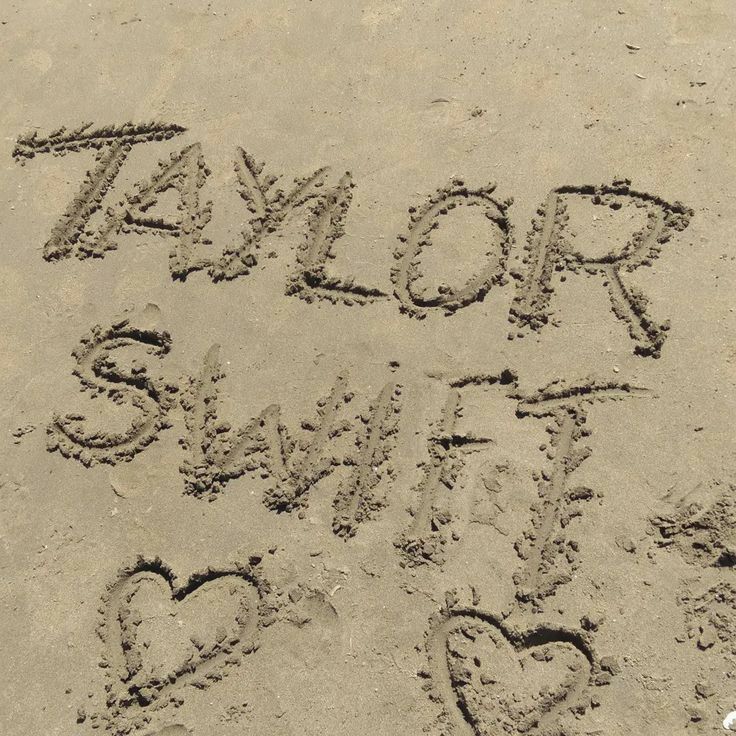 TAYLOR
SWIFT